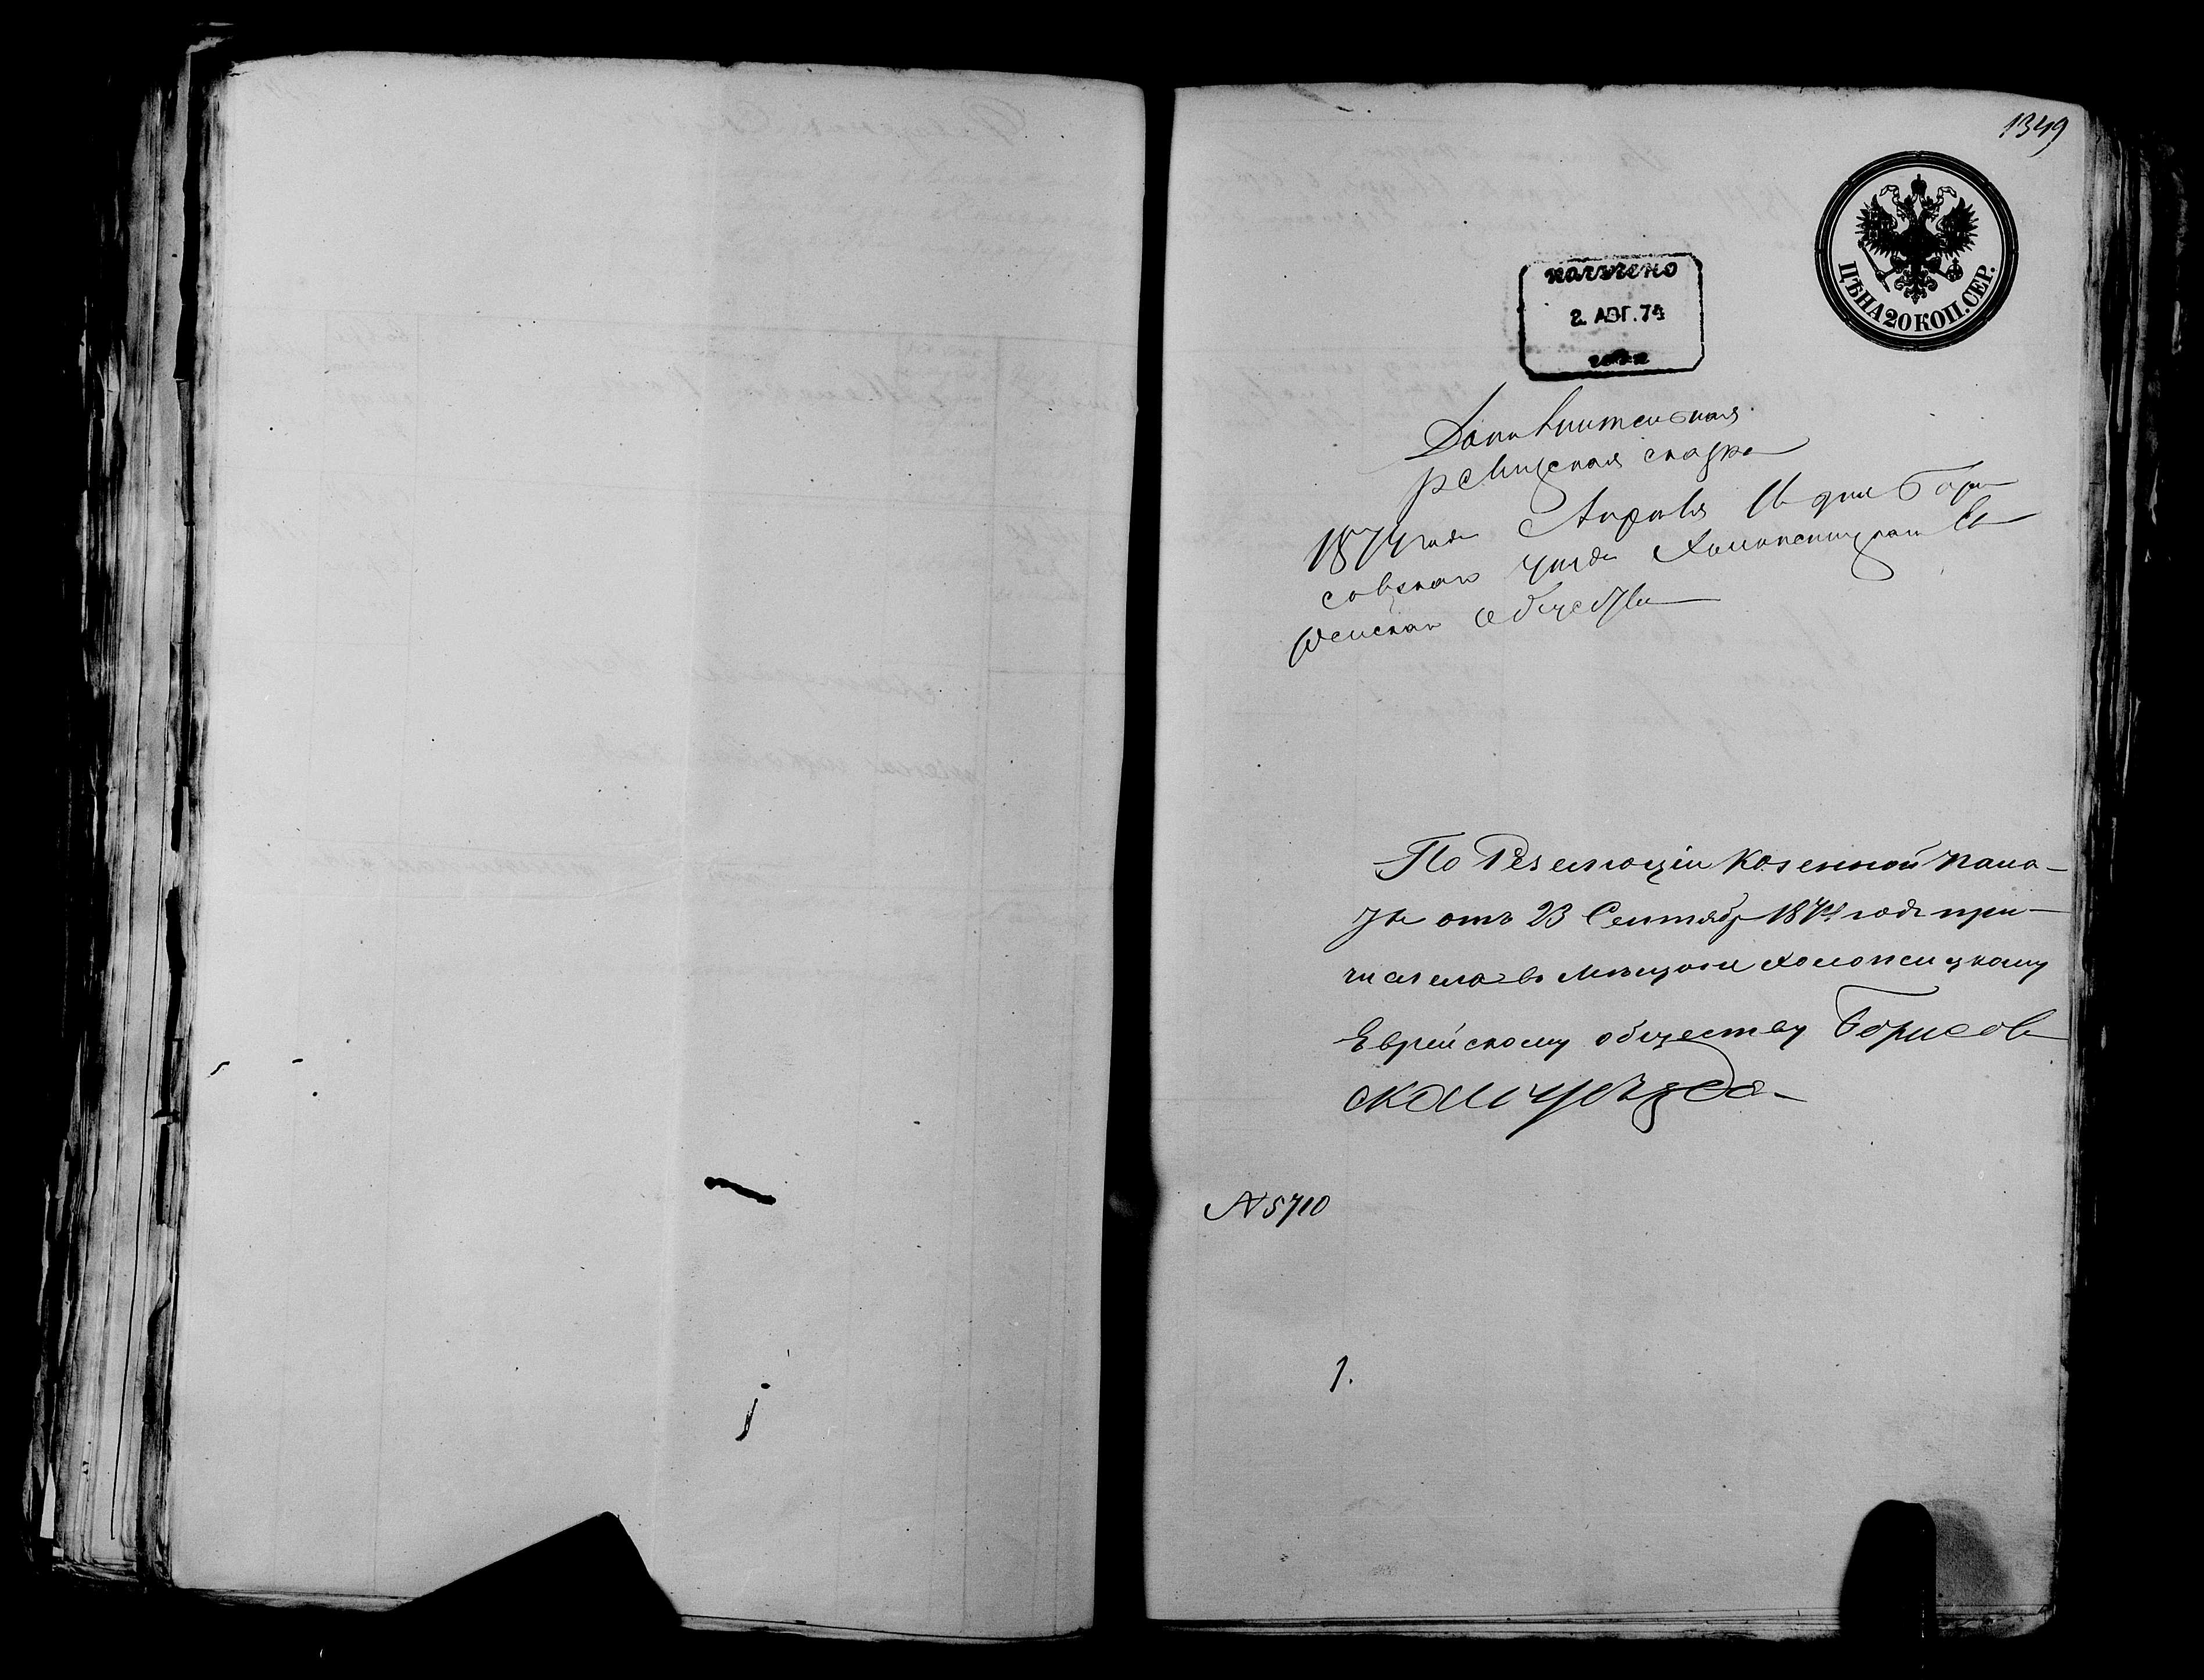 1349
ЦѢНА 20 КОП. СЕР.
получено
2. АВГ. 74
Дополнительная
ревизская сказка
1874 года Апреля дня Бори
совскаго уезда Холопеницкаго Ев
рейскаго общества
По Резолюціи Казенной Пала-
ты отъ 23 Сентябр 1874 года при-
числена въ мещане холопеницкому
Еврейскому обществу Борисов
скаго уезда
№ 5710
1.